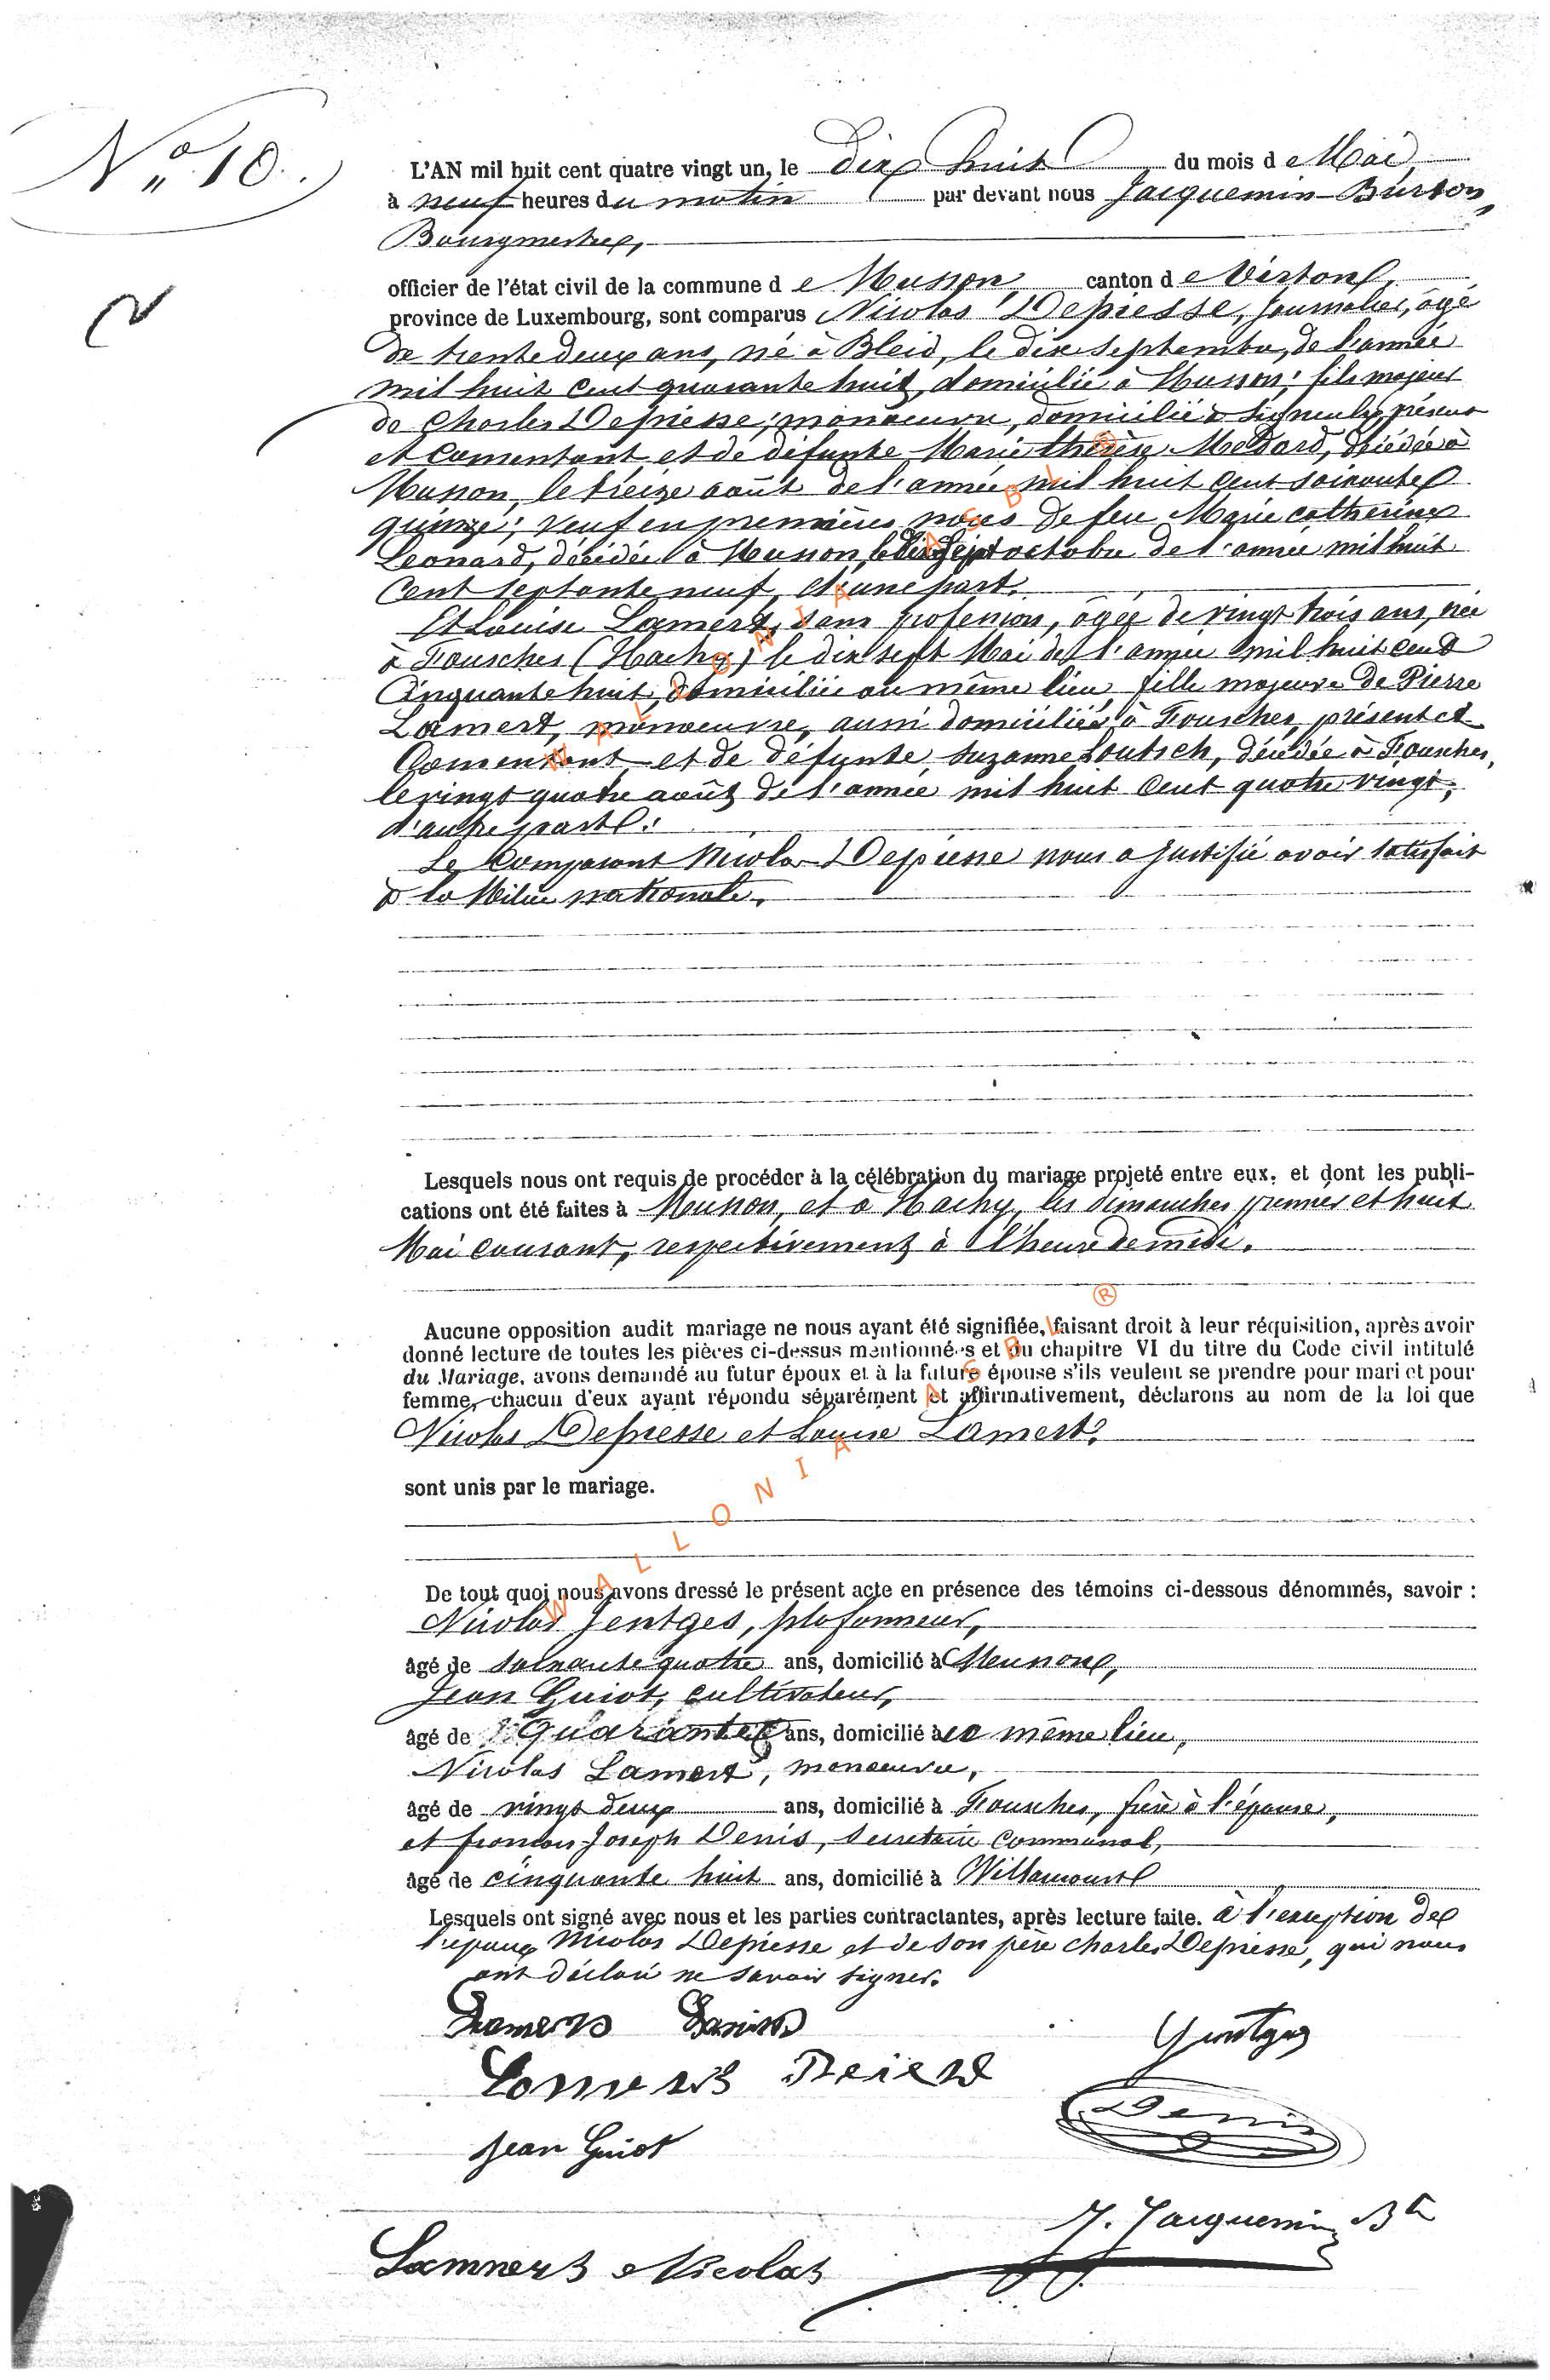 N° 10.
L'AN mil huit cent quatre vingt un, le dix huit du mois de Mai
à neuf heures du matin par devant nous Jacquemin-Burton,
Bourgmestre,
officier de l'état civil de la commune de Musson, canton de Virton,
province de Luxembourg, sont comparus Nicolas Depiesse, journalier, âgé
de trente deux ans, né à Bleid, le dix septembre, de l'année
mil huit cent quarante huit, domicilié à Musson; fils majeur
de Charles Depiesse; manoeuvre, domicilié à Signeulx, présent
et consentant et de défunte Marie thérèse Médard, décédée à
Musson, le treize août de l'année mil huit cent soixante
quinze; veuf en premières noces de feu Marie catherine
Leonard, décédée à Musson, le dix sept octobre de l'année mil huit
cent septante neuf, d'une part.
Et Louise Lamert, sans profession, âgée de vingt trois ans, née
à Fouches (Hachy) le dix sept Mai de l'année mil huit cent
Cinquante huit, domiciliée au même lieu, fille majeure de Pierre
Lamert, manoeuvre, aussi domicilié à Fouches, présent et
Consentant et de défunte Suzanne Loutsch, décédée à Fouches,
le vingt quatre août de l'année mil huit cent quatre vingt,
d'autre part.
Le Comparant Nicolas Depiesse nous a justifié avoir satisfait
à la Milice nationale.
Lesquels nous ont requis de procéder à la célébration du mariage projeté entre eux, et dont les publi-
cations ont été faites à Musson, et à Hachy, les dimanches premier et huit
Mai courant, respectivement à l'heure de midi.
Aucune opposition audit mariage ne nous ayant été signifiée, faisant droit à leur réquisition, après avoir
donné lecture de toutes les pièces ci-dessus mentionnées et du chapitre VI du titre du Code civil intitulé
du Mariage, avons demandé au futur époux et à la future épouse s'ils veulent se prendre pour mari et pour
femme, chacun d'eux ayant répondu séparément et affirmativement, déclarons au nom de la loi que
Nicolas Depiesse et Louise Lamert.
sont unis par le mariage.
De tout quoi nous avons dressé le présent acte en présence des témoins ci-dessous dénommés, savoir :
Nicolas Jentges, plafonneur,
âgé de soixante quatre ans, domicilié à Musson,
Jean Guiot, cultivateur,
âgé de quarante ans, domicilié à ce même lieu,
Nicolas Lamert, manoeuvre,
âgé de vingt deux ans, domicilié à Fouches, frère à l'épouse,
et françois Joseph Denis, secrétaire communal,
âgé de cinquante huit ans, domicilié à Willancourt
Lesquels ont signé avec nous et les parties contractantes, après lecture faite. à l'exception de
l'époux Nicolas Depiesse et de son père Charles Depiesse, qui nous
ont déclaré ne savoir signer.
Jentges
Denis
Jean Guiot
J. Jacquemin Bn
Lamnert Nicolas
WALLONIA ASBL ®
WALLONIA ASBL ®